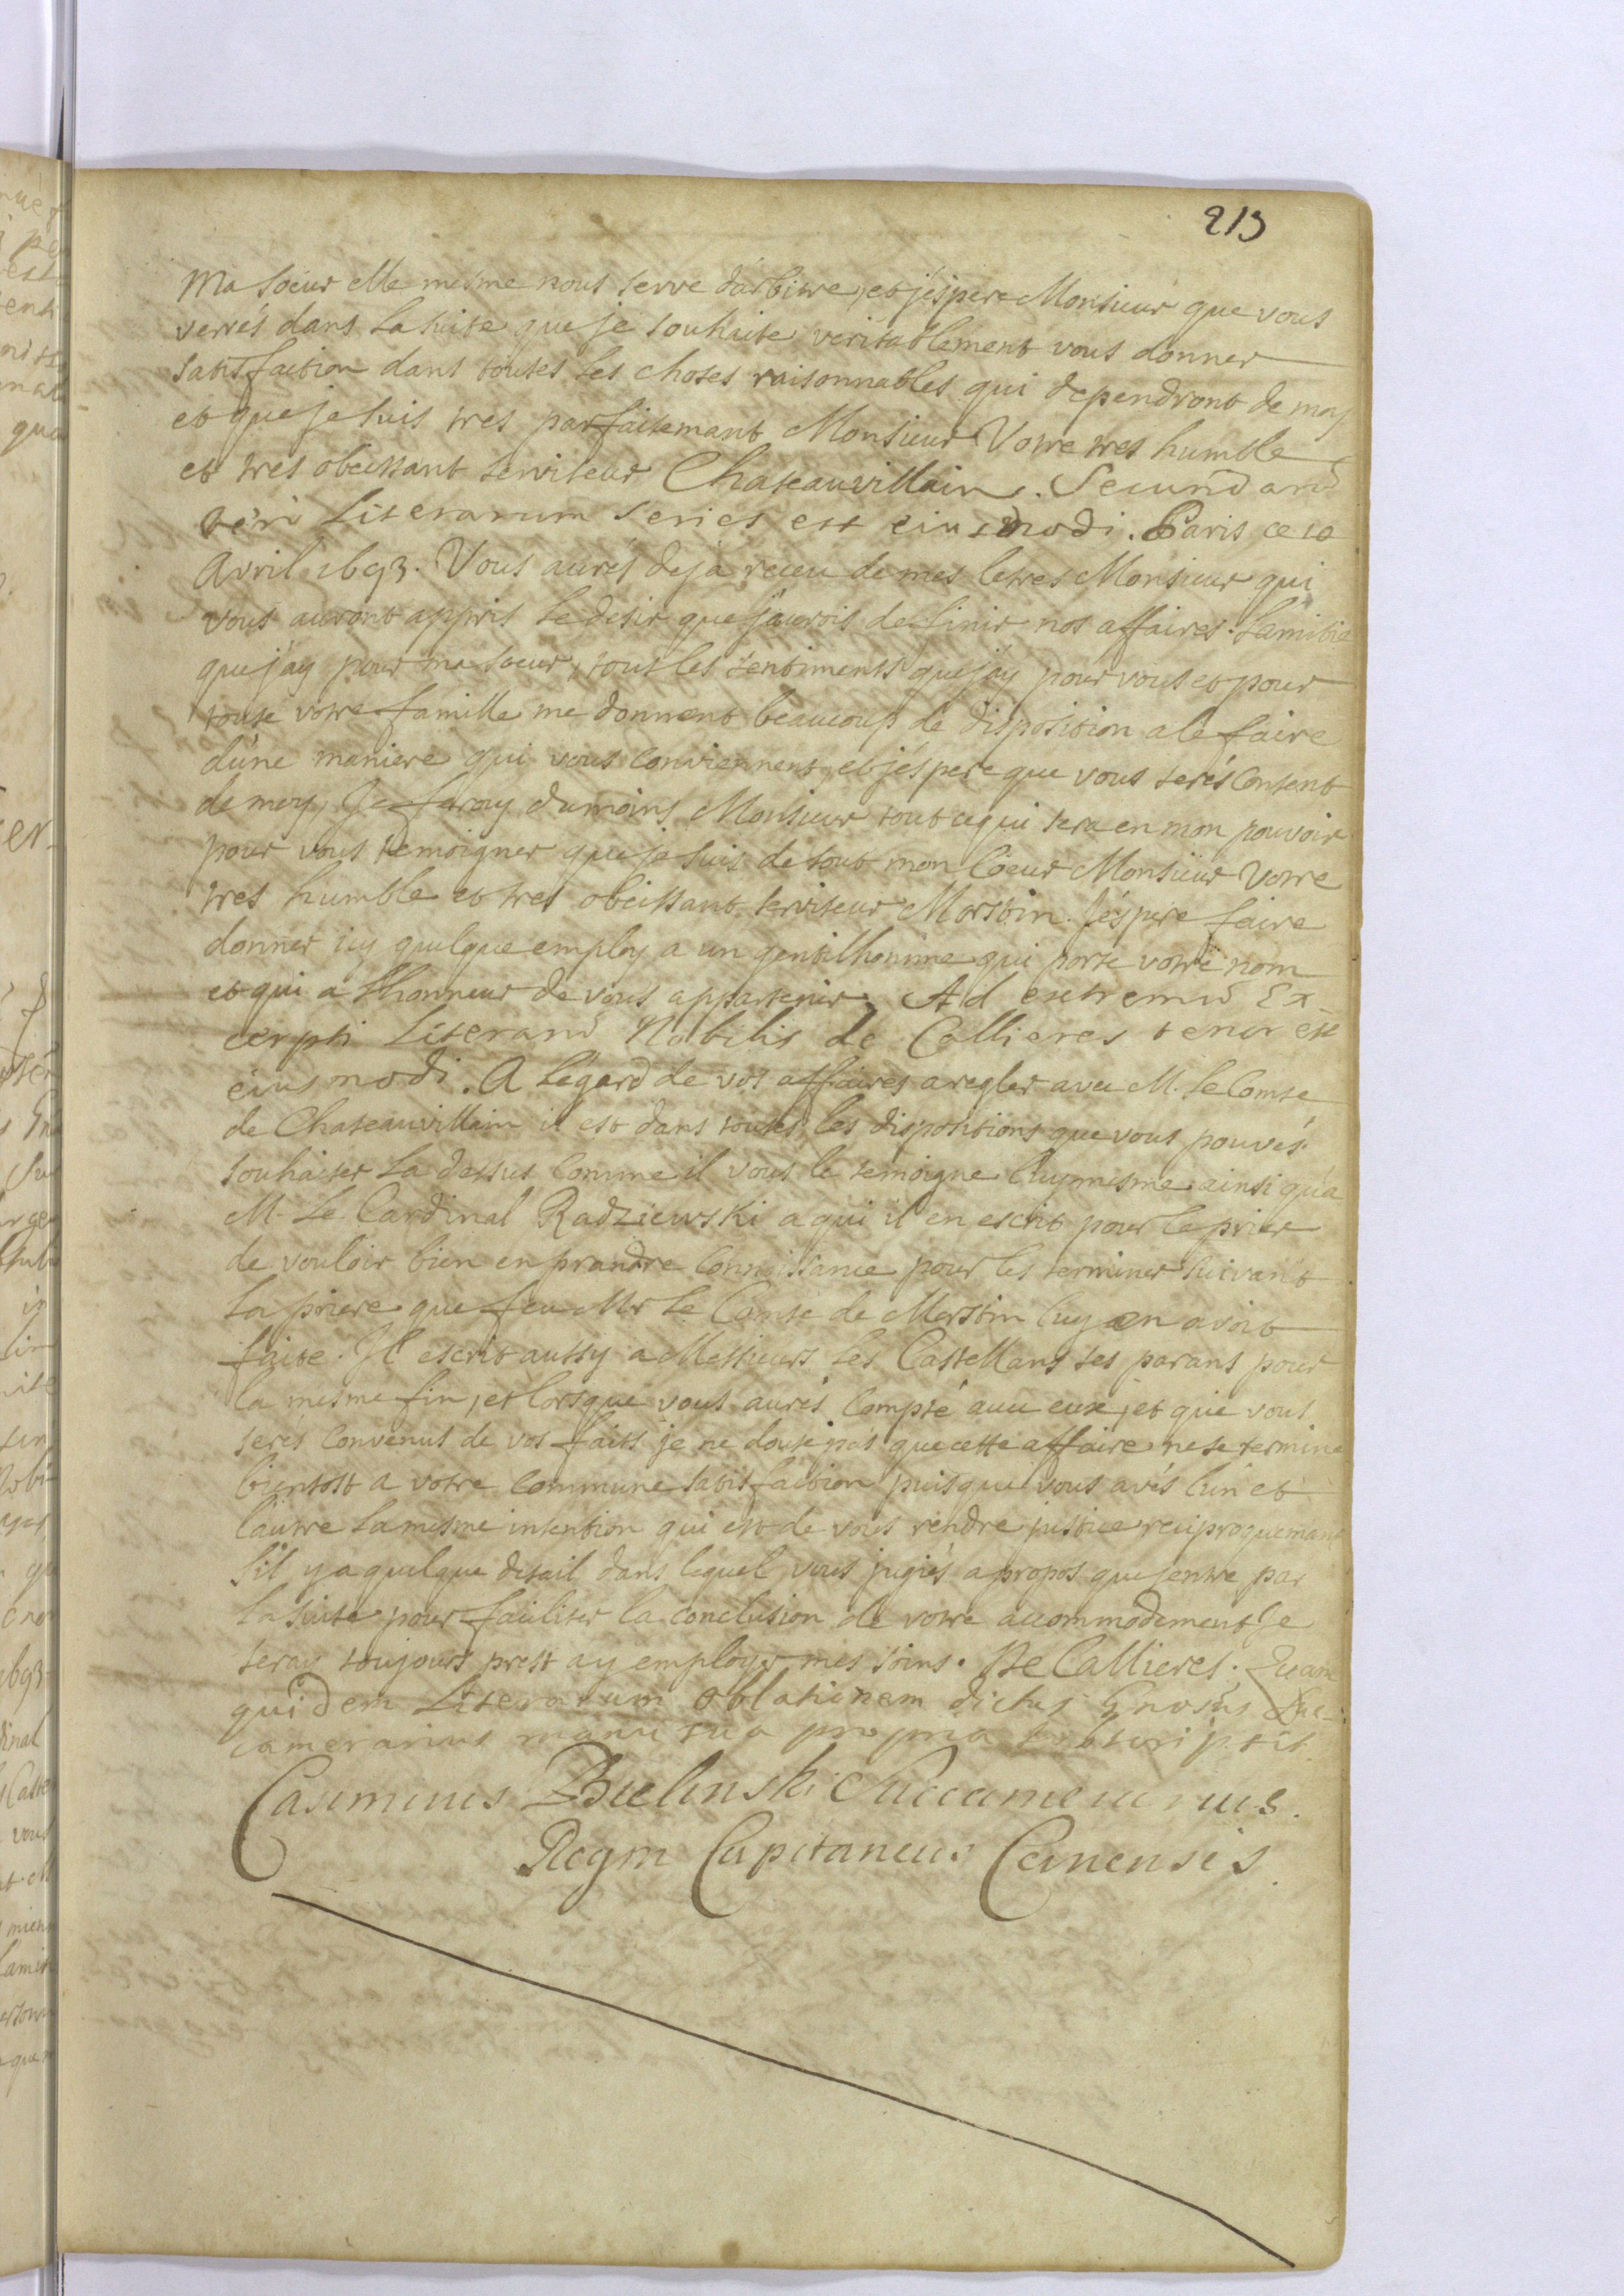 213
Ma soeur elle mesme nous serve d'arbitre, et j'espere Monsieur que vous
verrés dans la suite que je souhaite veritablement vous donner
satisfaction dans toutes les choses raisonnables qui dependront de moy
et que je suis tres parfaitemant Monsieur Votre tres humble
et tres obeissant serviteur Chateauvillain. Secundarū
verò Literarum series est eiusmodi. Paris ce 10
Avril 1693. Vous aurés deja receu de mes letres Monsieur qui
vous auront appris le desir que j'aurois de finir nos affaires. Lamitie
que j'ay pour ma soeur, tous les sentiments que j'ay pour vous et pour
toute votre famille me donnent beaucoup de disposition a le faire
d'une maniere qui vous conviennent, et j'espere que vous serés content
de moy, Je feray du moins Monsieur tout ce qui sera en mon pouvoir
pour vous temoigner que je suis de tout mon Coeur Monsieur Votre
tres humble et tres obeissant serviteur Morstin. J'espere faire
donner icy quelque employ a un gentilhomme qui porte votre nom
et qui a l'honneur de vous appartenir. Ad extremū Ex-
cerpti Literarū Nobilis de Callieres tenor est
eiusmodi. A l'egard de vos affaires a regler avec M. le Comte
de Chateauvillain il est dans toutes les dispositions que vous pouvés
souhaiter la dessus comme il vous le temoigne luymesme ainsi qu'a
M. Le Cardinal Radziewski a qui il en escrit pour le prier
de vouloir bien en prandre connoissance pour les terminer suivant
la priere que feu Mr le Comte de Morstin luy en avoit
faite. Il escrit aussy a Messieurs les Castellans ses parans pour
la mesme fin, et lorsque vous aurés compté avec eux, et que vous
serés convenus de vos faits je ne doute pas que cette affaire ne se termine
bientost a votre commune satisfaction puisque vous avés l'un et
l'autre la mesme intention qui est de vous rendre justice reciproquemant
S'il y a quelque detail dans lequel vous jugiés a propos que j'entre par
la suite pour faciliter la conclusion de votre accommodement Je
seray toujours prest a y employer mes soins. De Callieres. Quam
quidem Literarum oblationem dictus Gnosus Suc-
camerarius manu sua propria subscripsit.
Casimirus Bielinski Succamerarius.
Regni Capitaneus Cernensis.